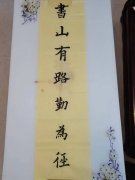 書山有路勤為徑